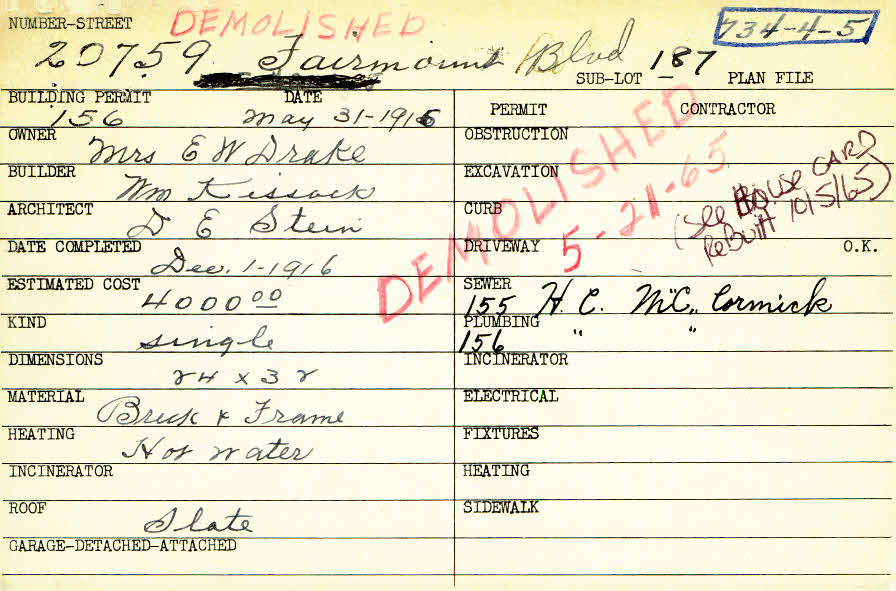 NUMBER-STREET DEMOLISHED 734-4-5
20759 Fairmount Blvd SUB-LOT 187 PLAN FILE
BUILDING PERMIT DATE
156 May 31-1916
OWNER
Mrs E W Drake
BUILDER
Wm Kissack
ARCHITECT
D E Stein
DATE COMPLETED
Dec. 1-1916
ESTIMATED COST
4000 00
KIND
single
DIMENSIONS
24 x 32
MATERIAL
Brick & Frame
HEATING
Hot water
INCINERATOR
ROOF
Slate
GARAGE-DETACHED-ATTACHED
PERMIT CONTRACTOR
OBSTRUCTION
EXCAVATION
CURB
DRIVEWAY O.K.
SEWER
155 H. C. McCormick
PLUMBING
156 " "
INCINERATOR
ELECTRICAL
FIXTURES
HEATING
SIDEWALK
DEMOLISHED
5-21-65
(See House CARD
ReBuilt 10/5/65)